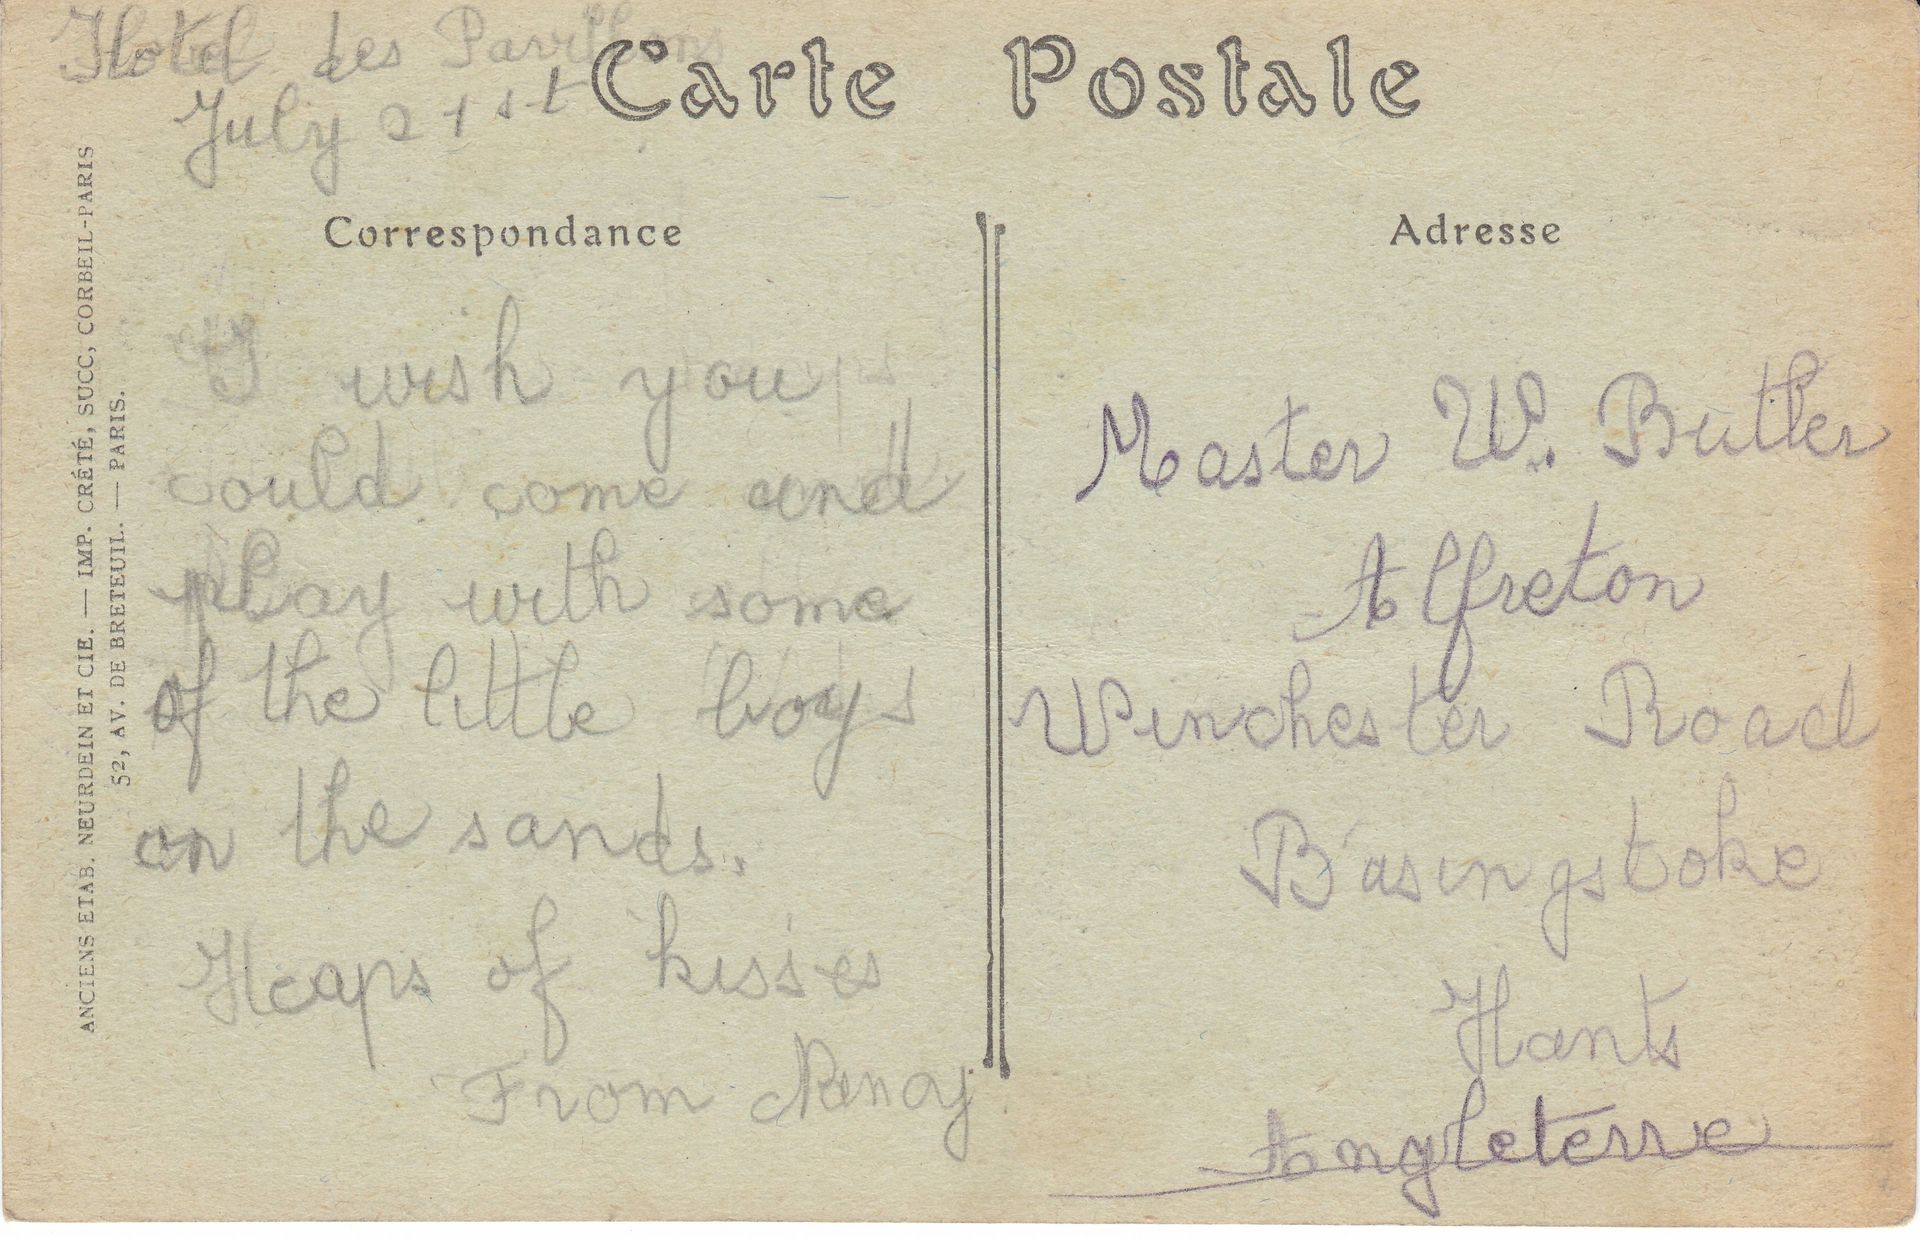 Hotel des Pavillons
July 21st
Carte Postale
Correspondance
Adresse
ANCIENS ETAB. NEURDEIN ET CIE. — IMP. CRÉTÉ, SUCC, CORBEIL-PARIS
52, AV. DE BRETEUIL. — PARIS.
I wish you
could come and
play with some
of the little boys
on the sands.
Heaps of kisses
From
Master W. Butler
Alfreton
Winchester Road
Basingstoke
Hants
Angleterre